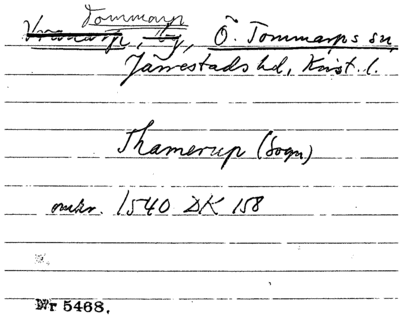 Tommarp
Vranarp, by, Ö. Tommarps sn,
Järrestads hd, Krist. l.
Thamerup (Sogn)
omkr. 1540 DK 158
Nr 5468.